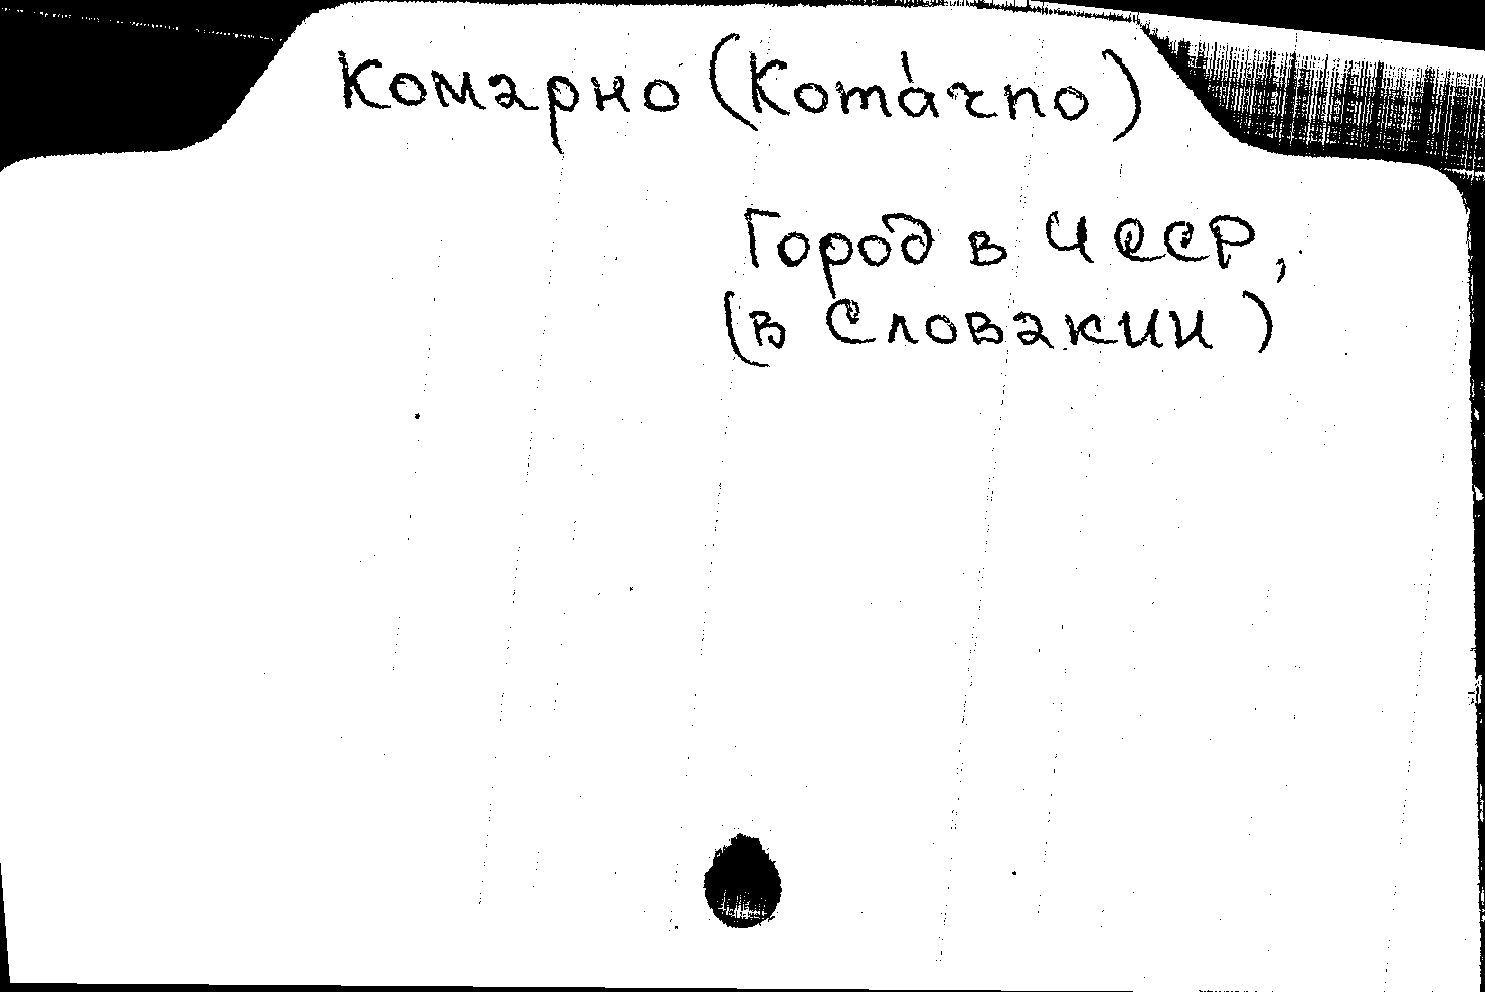 Комарно (Komárno)
Город в ЧССР,
(в Словакии)